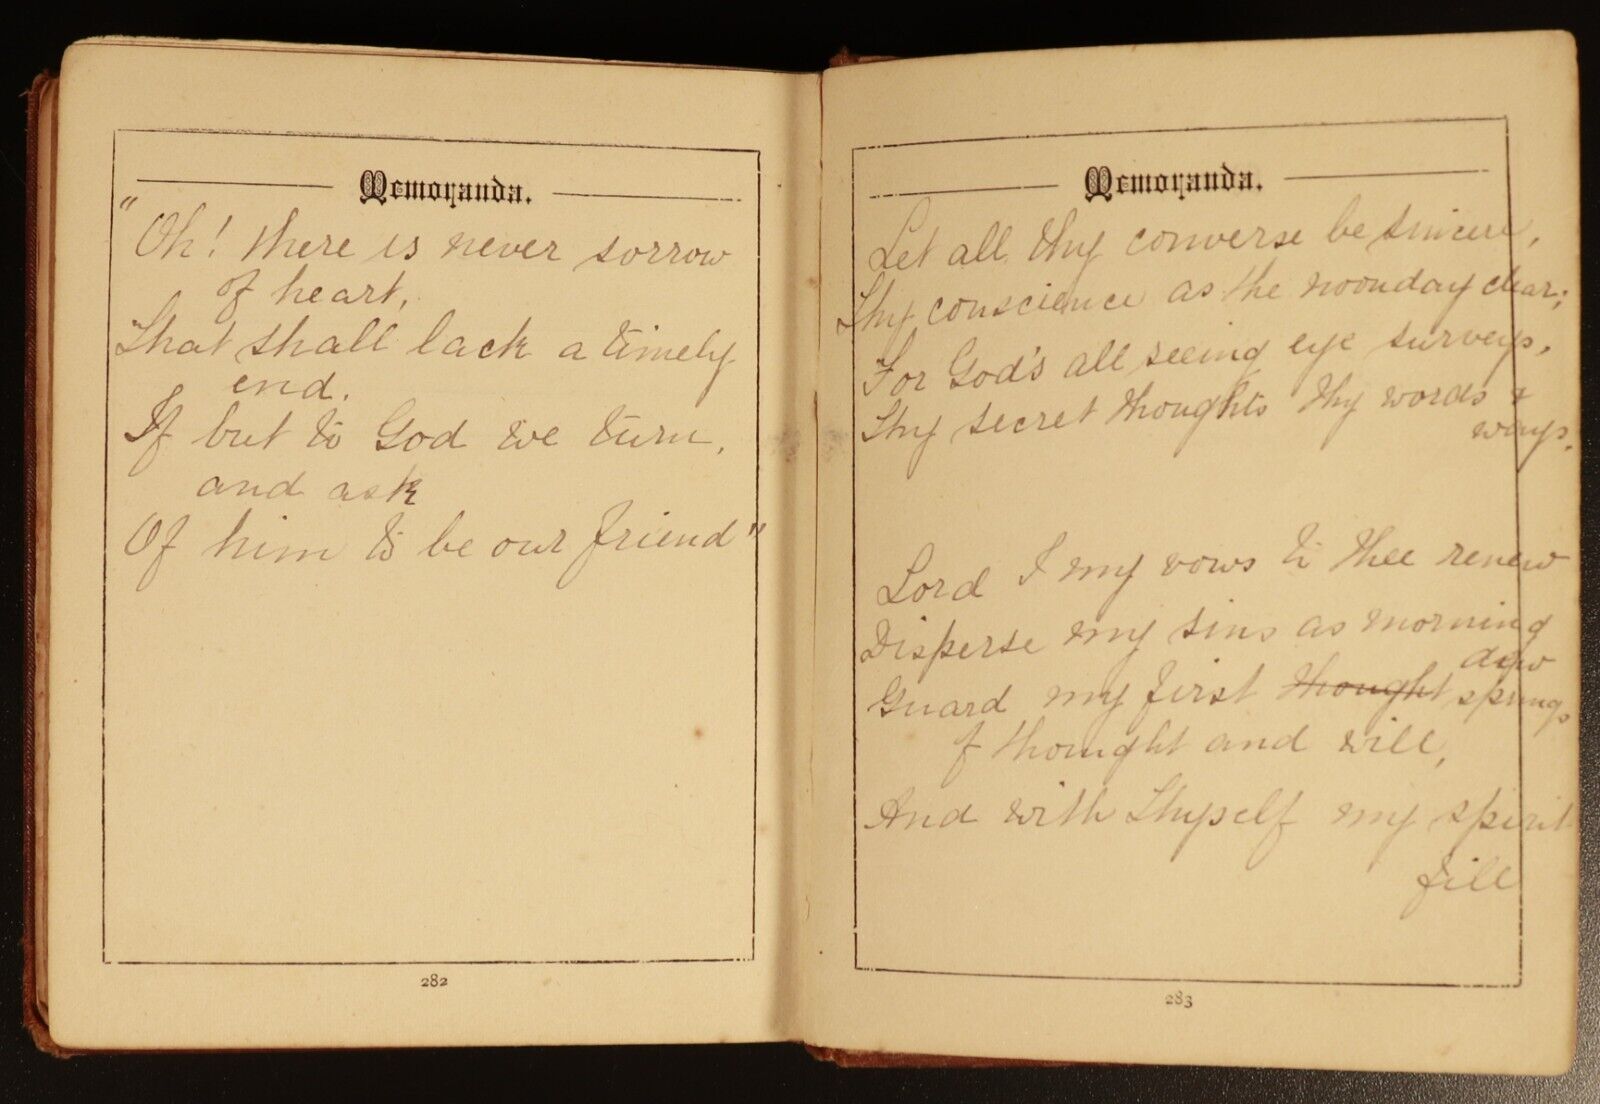 Memoranda.
"Oh! there is never sorrow
of heart,
That shall lack a timely
end.
If but to God we turn,
and ask
Of him to be our friend"
282
Memoranda.
Let all thy converse be sincere,
Thy conscience as the noonday clear;
For God's all seeing eye surveys,
Thy secret thoughts thy words &
ways.
Lord I my vows to thee renew
Disperse my sins as morning
dew
Guard my first thought springs
of thought and will,
And with Thyself my spirit
fill
283